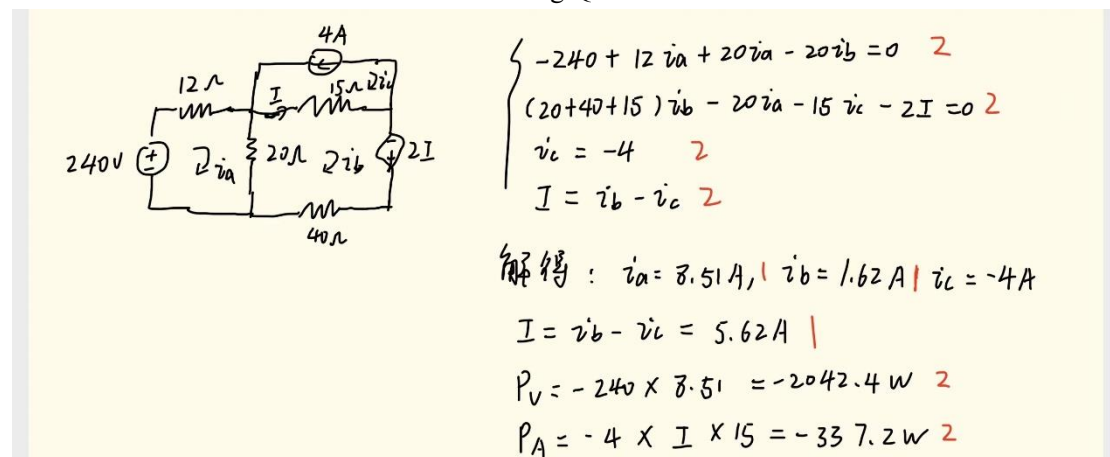 4A
12Ω
I
15Ω
ic
240V
ia
20Ω
ib
2I
40Ω
-240 + 12 ia + 20ia - 20ib = 0 2
(20+40+15) ib - 20ia - 15 ic - 2I = 0 2
ic = -4 2
I = ib - ic 2
解得: ia = 8.51A, 1 ib = 1.62A 1 ic = -4A
I = ib - ic = 5.62A 1
PV = -240 × 8.51 = -2042.4 W 2
PA = -4 × I × 15 = -337.2 W 2